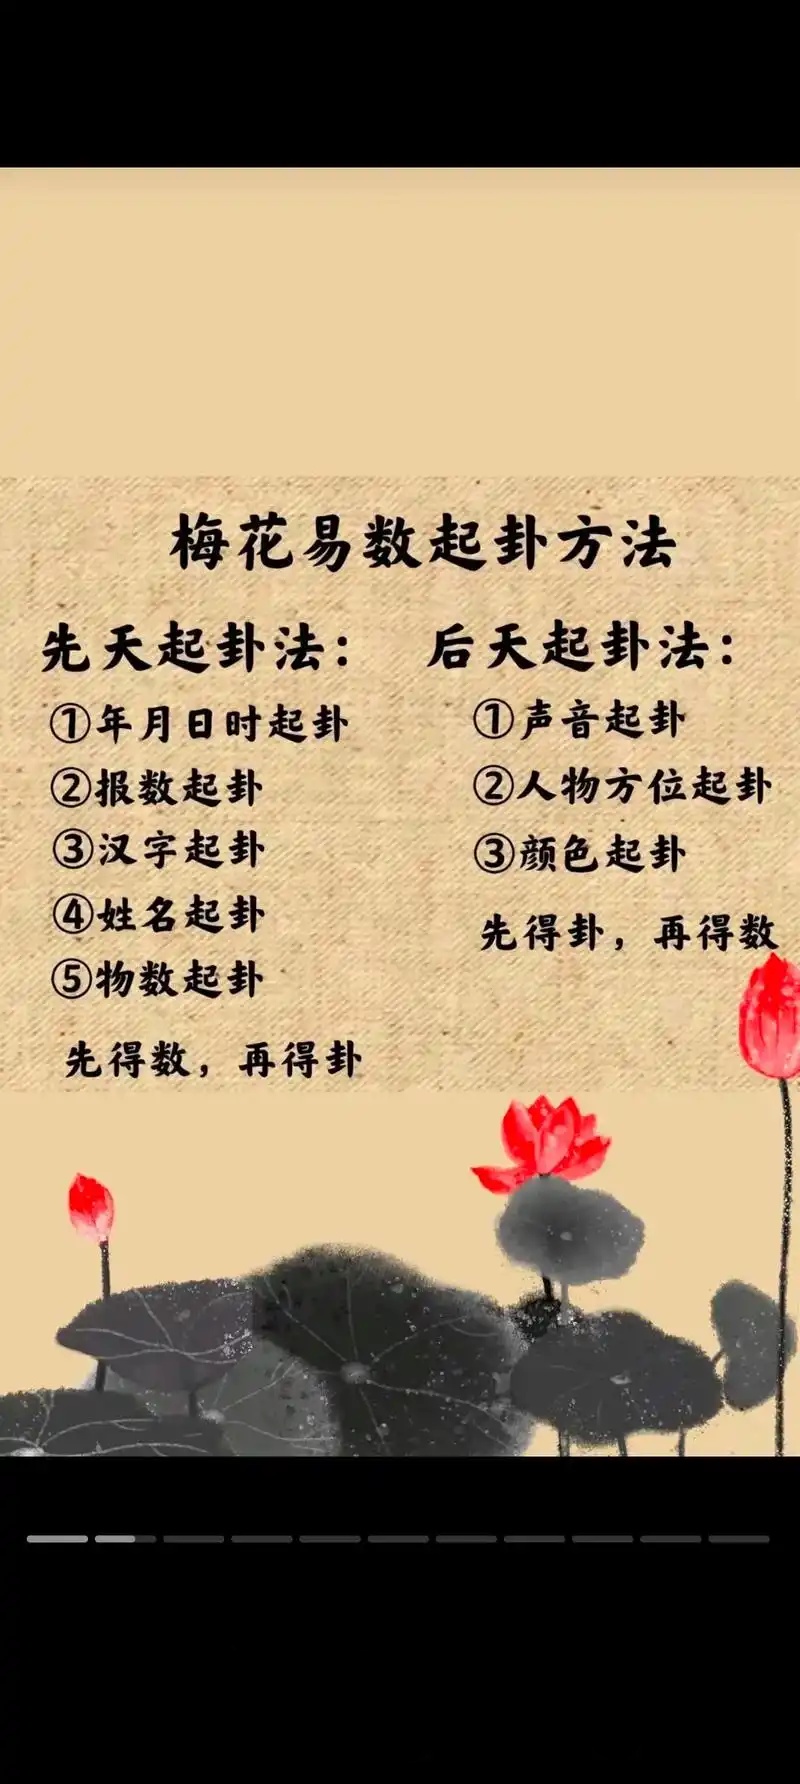 梅花易数起卦方法
先天起卦法：
①年月日时起卦
②报数起卦
③汉字起卦
④姓名起卦
⑤物数起卦
先得数，再得卦
后天起卦法：
①声音起卦
②人物方位起卦
③颜色起卦
先得卦，再得数